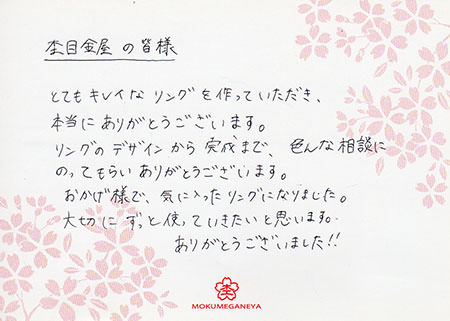 杢目金屋 の 皆様
とても キレイな リングを 作って いただき、
本当に ありがとうございます。
リングの デザインから 完成まで、色んな 相談に
のって もらい ありがとうございます。
おかげ様で、気に入った リングに なりました。
大切に ずっと 使って いきたいと 思います。
ありがとうございました!!
杢
MOKUMEGANEYA